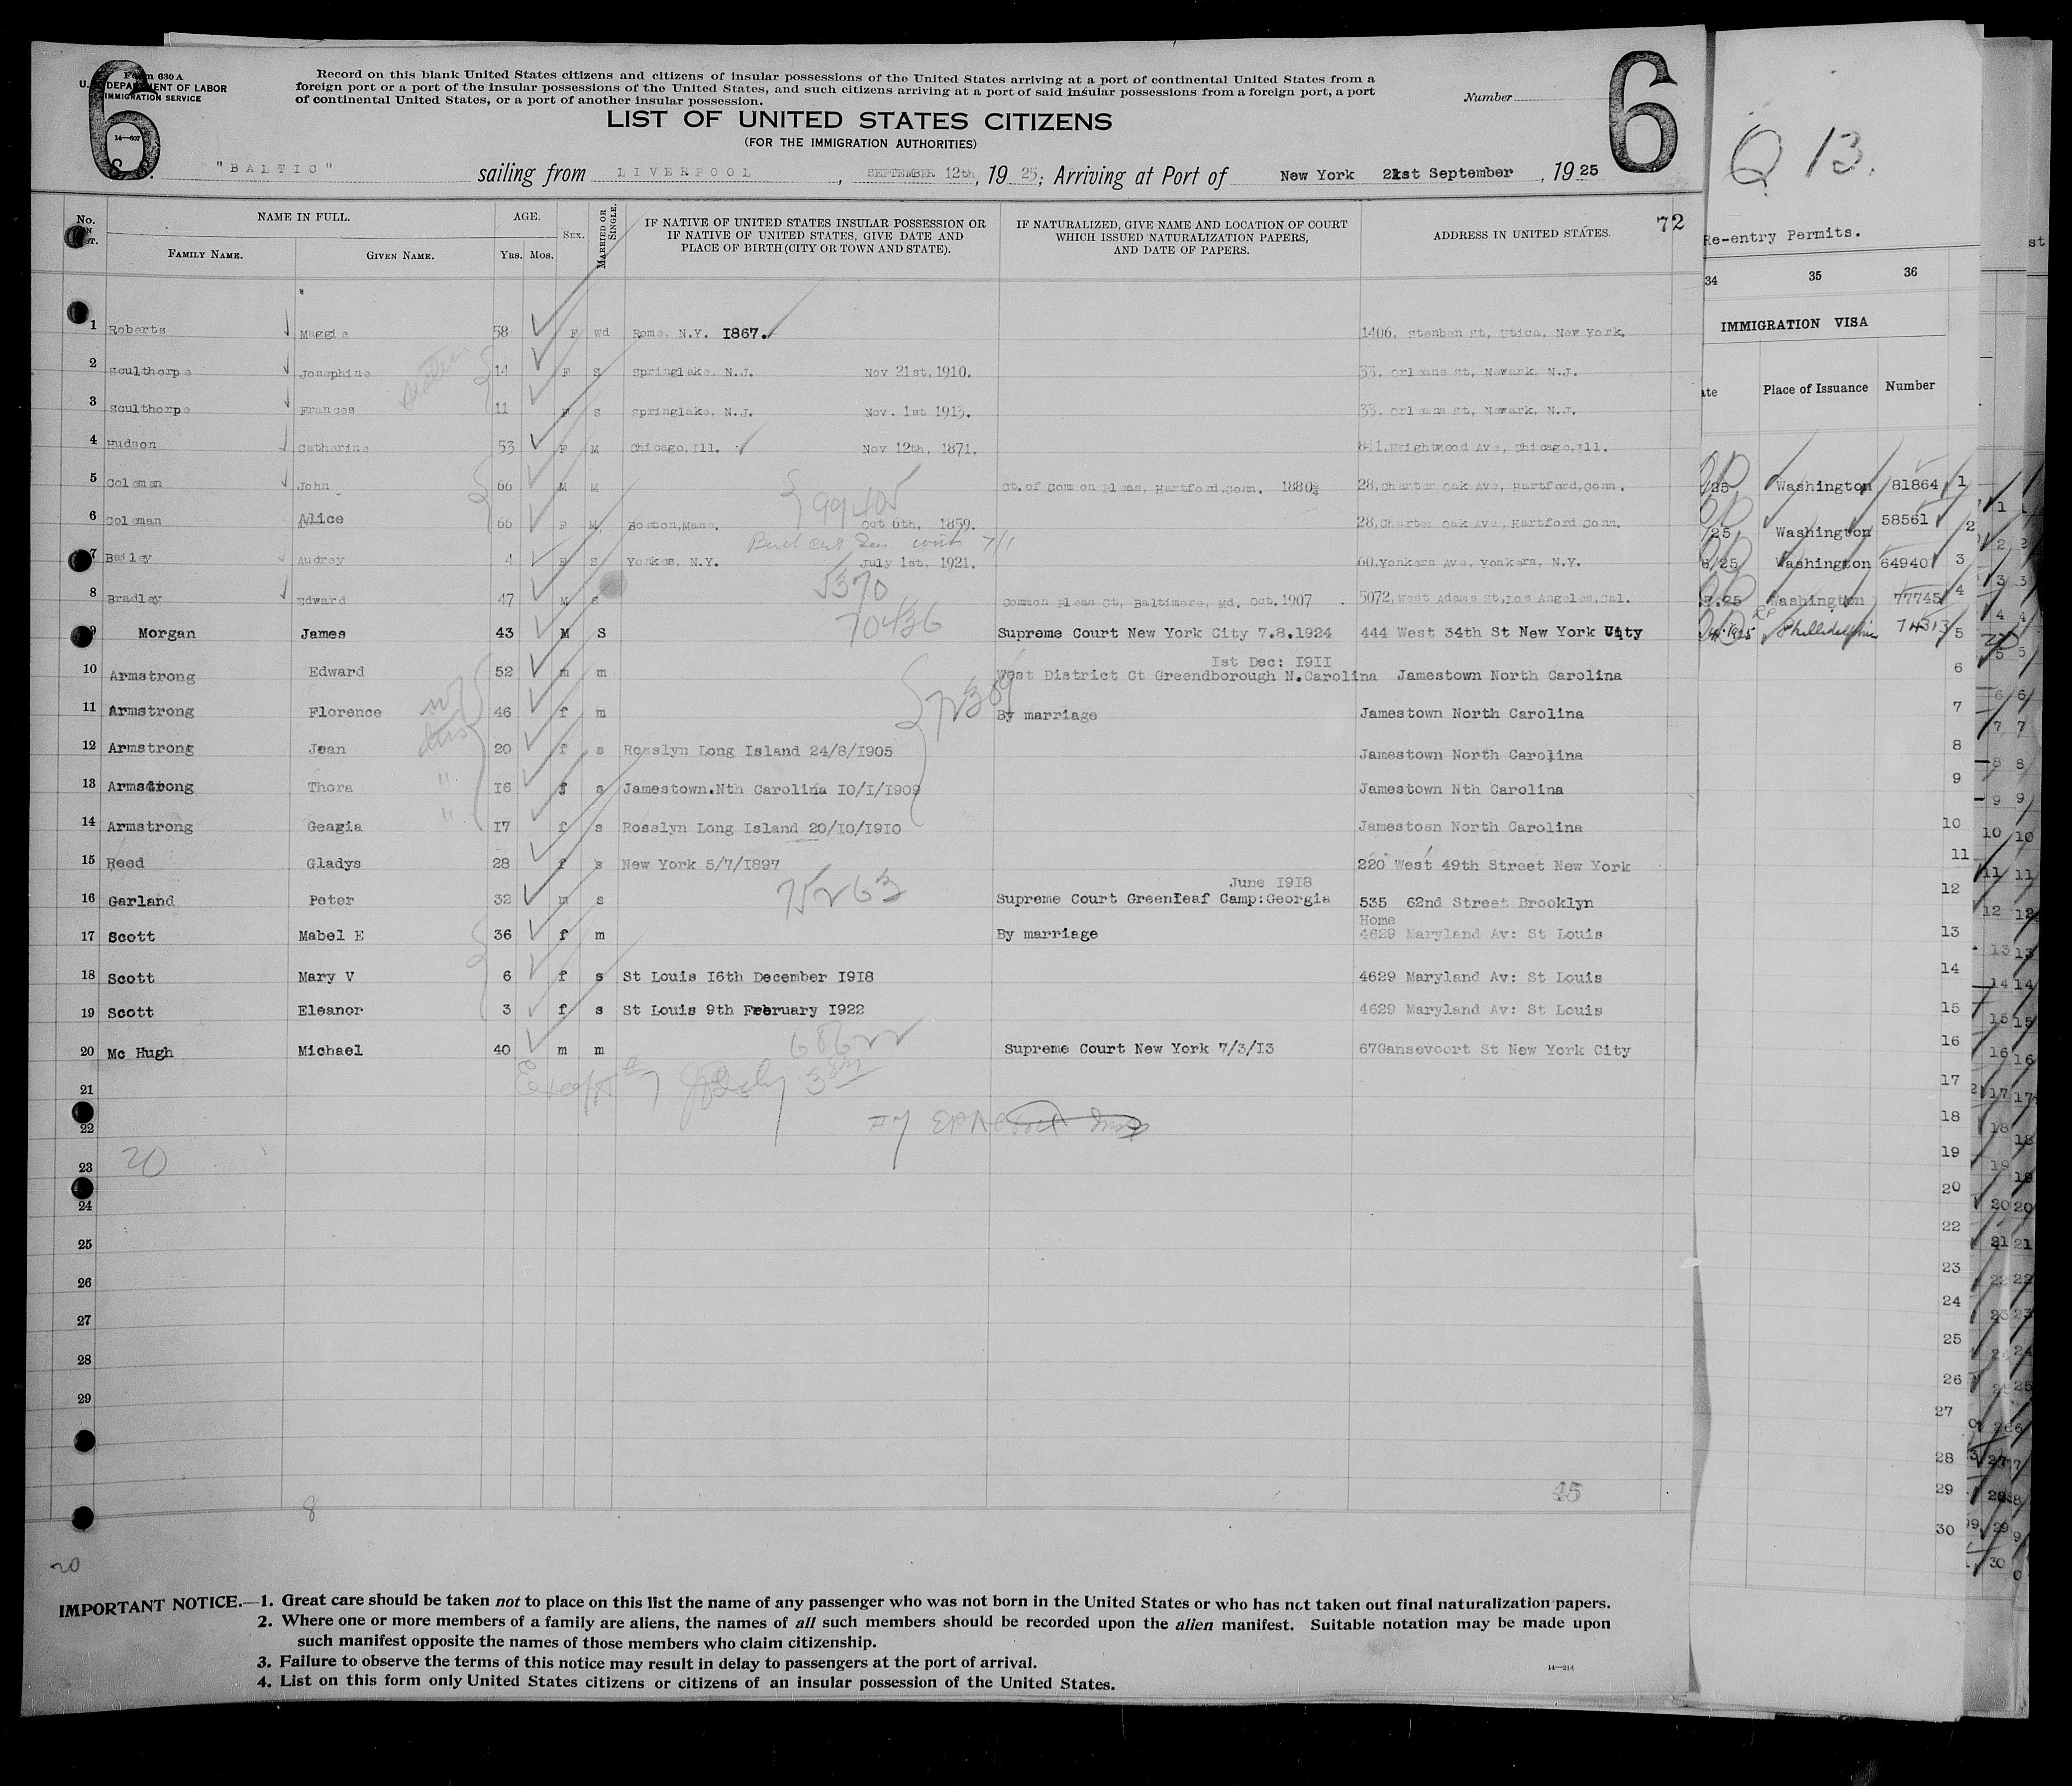 6
Form 630 A
U. S. DEPARTMENT OF LABOR
IMMIGRATION SERVICE
14—607
Record on this blank United States citizens and citizens of insular possessions of the United States arriving at a port of continental United States from a
foreign port or a port of the insular possessions of the United States, and such citizens arriving at a port of said insular possessions from a foreign port, a port
of continental United States, or a port of another insular possession.
Number
6
LIST OF UNITED STATES CITIZENS
(FOR THE IMMIGRATION AUTHORITIES)
S. S. "BALTIC" sailing from LIVERPOOL, SEPTEMBER 12th, 19 25; Arriving at Port of New York 21st September, 19 25
72
No. NAME IN FULL. AGE. SEX. MARRIED OR SINGLE. IF NATIVE OF UNITED STATES INSULAR POSSESSION OR IF NATIVE OF UNITED STATES, GIVE DATE AND PLACE OF BIRTH (CITY OR TOWN AND STATE). IF NATURALIZED, GIVE NAME AND LOCATION OF COURT WHICH ISSUED NATURALIZATION PAPERS, AND DATE OF PAPERS. ADDRESS IN UNITED STATES.
FAMILY NAME. GIVEN NAME. YRS. MOS.
1 Roberts Maggie 58 F Wd Rome, N.Y. 1867. 1406, Stenben St, Utica, New York.
2 Sculthorpe Josephine 14 F S Springlake, N.J. Nov 21st, 1910. 33. Orleans St, Newark, N.J.
3 Sculthorpe Frances 11 F S Springlake, N.J. Nov. 1st 1913. 33. Orleans St, Newark, N.J.
4 Hudson Catharine 53 F M Chicago, Ill. Nov 12th, 1871. 841, Wrightwood Ave, Chicago, Ill.
5 Coleman John 66 M M Ct. of Common Pleas, Hartford, Conn. 1880 28, Charter Oak Ave, Hartford, Conn.
99405
6 Coleman Alice 66 F M Boston, Mass. Oct 6th, 1859. 28, Charter Oak Ave, Hartford Conn.
7 Bailey Audrey 4 F S Yonkes, N.Y. July 1st, 1921. 60. Yonkers Ave, Yonkers, N.Y.
8 Bradley Edward 47 M S Common Pleas Ct, Baltimore, Md. Oct. 1907. 5072, West Adams St, Los Angeles, Cal.
9 Morgan James 43 M S 70436 Supreme Court New York City 7.8.1924 444 West 34th St New York City
1st Dec: 1911
10 Armstrong Edward 52 m m West District Ct Greendborough N.Carolina Jamestown North Carolina
11 Armstrong Florence 46 f m By marriage Jamestown North Carolina
12 Armstrong Jean 20 f s Rosslyn Long Island 24/8/1905 Jamestown North Carolina
13 Armstrong Thora 16 f s Jamestown.Nth Carolina 10/1/1909 Jamestown Nth Carolina
14 Armstrong Geagia 17 f s Rosslyn Long Island 20/10/1910 Jamestosn North Carolina
15 Reed Gladys 28 f s New York 5/7/1897 220 West 49th Street New York
June 1918
16 Garland Peter 32 m s 75263 Supreme Court Greenleaf Camp:Georgia 535 62nd Street Brooklyn
Home
17 Scott Mabel E 36 f m By marriage 4629 Maryland Av: St Louis
18 Scott Mary V 6 f s St Louis 16th December 1918 4629 Maryland Av: St Louis
19 Scott Eleanor 3 f s St Louis 9th February 1922 4629 Maryland Av: St Louis
20 Mc Hugh Michael 40 m m 68622 Supreme Court New York 7/3/13 67Gansevoort St New York City
21
22
23 20
24
25
26
27
28
29
45
8
20
IMPORTANT NOTICE.—1. Great care should be taken not to place on this list the name of any passenger who was not born in the United States or who has not taken out final naturalization papers.
2. Where one or more members of a family are aliens, the names of all such members should be recorded upon the alien manifest. Suitable notation may be made upon
such manifest opposite the names of those members who claim citizenship.
3. Failure to observe the terms of this notice may result in delay to passengers at the port of arrival.
4. List on this form only United States citizens or citizens of an insular possession of the United States.
14—214
Q 13.
Re-entry Permits.
34 35 36
IMMIGRATION VISA
Place of Issuance Number
25 Washington 81864 1
25 Washington 58561 2
25 Washington 64940 3
25 Washington 77745 4
1925 Philadelphia 5
6
7
8
9
10
11
12
13
14
15
16
17
18
19
20
22
23
24
25
26
27
28
29
30